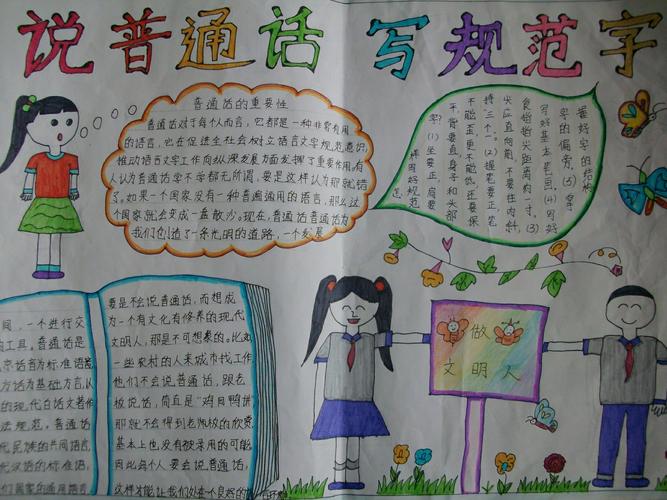 说普通话 写规范字
普通话的重要性
普通话对于每个人而言,它都是一种非常有用
的语言,它在促进全社会树立语言文字规范意识,
推动语言文字工作向纵深发展方面发挥了重要作用,有
人认为普通话学不学都无所谓,要是这样认为那就错
了。如果一个国家没有一种普遍通用的语言,那么这
个国家就会变成一盘散沙。现在,普通话普通话为
我们创造了一条光明的道路,一个发展
怎
样写好规范
字?(1)坐要正,肩要
平,背要直,身子和头部
不能歪,更不能低,还要保
持“三个一”。(2)握笔要正笔
尖应直向前,不要往内斜,
食指指尖距离约一寸。(3)
写好基本笔画。(4)写好
字的偏旁。(5)掌
握好字的结构
间,一个进行交
的工具,普通话是
京语言为标准语音
方话为基础方言,以
的现代白话文著作
法规范。普通话
代民族的共同语言
代汉语的标准语,
们国家的通用语言
要是不会说普通话,而想成
为一个有文化有修养的现代
文明人,那是不可想象的。比如
一些农村的人来城市找工作
他们不会说普通话,跟老
板说话,简直是“鸡同鸭讲
那就不会得到老板的欣赏
基本上也没有被录用的可能
因此每个人要会说普通话,
这样才能让我们处在一个良好的
做
文明人